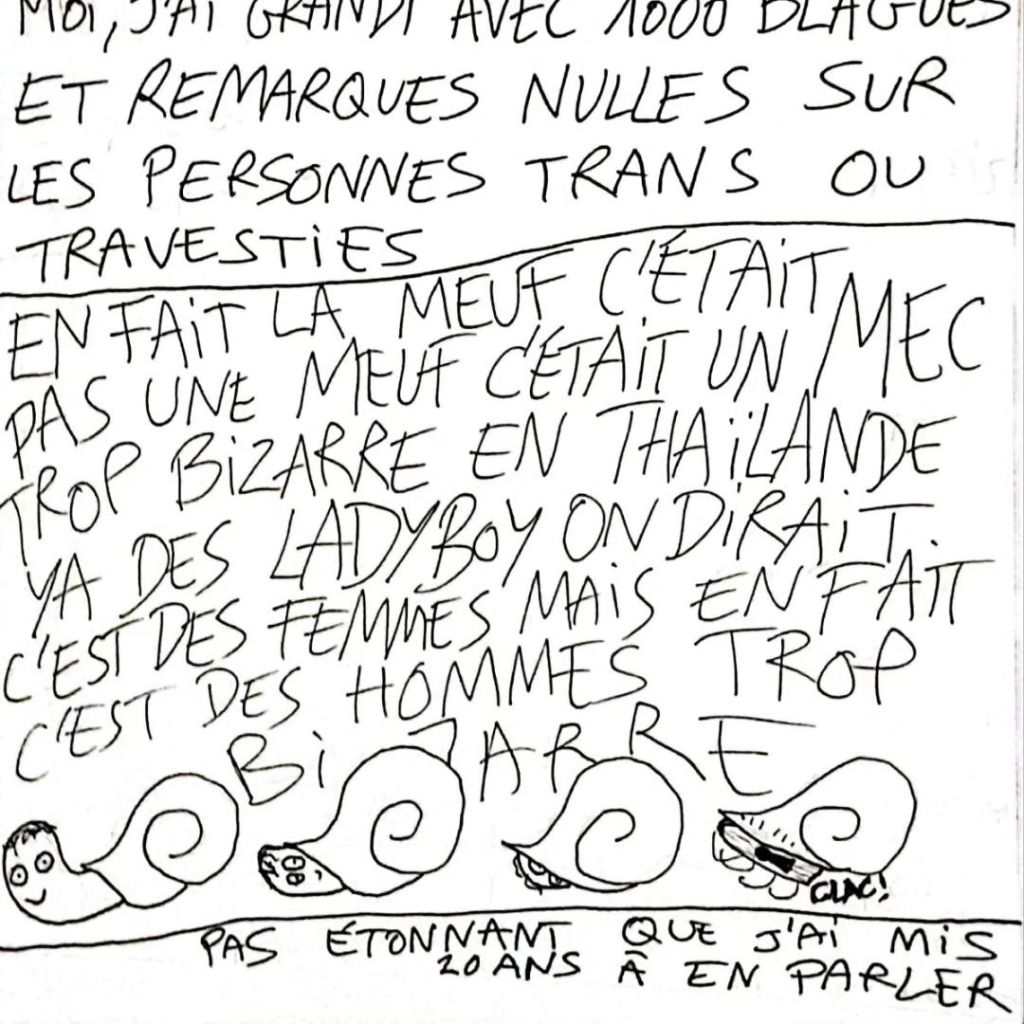 MOI, J'AI GRANDI AVEC 1000 BLAGUES
ET REMARQUES NULLES SUR
LES PERSONNES TRANS OU
TRAVESTIES
EN FAIT LA MEUF C'ÉTAIT
PAS UNE MEUF C'ÉTAIT UN MEC
TROP BIZARRE EN THAÏLANDE
YA DES LADYBOY ON DIRAIT
C'EST DES FEMMES MAIS EN FAIT
C'EST DES HOMMES TROP
BIZARRE
CLAC!
PAS ÉTONNANT QUE J'AI MIS
20 ANS À EN PARLER